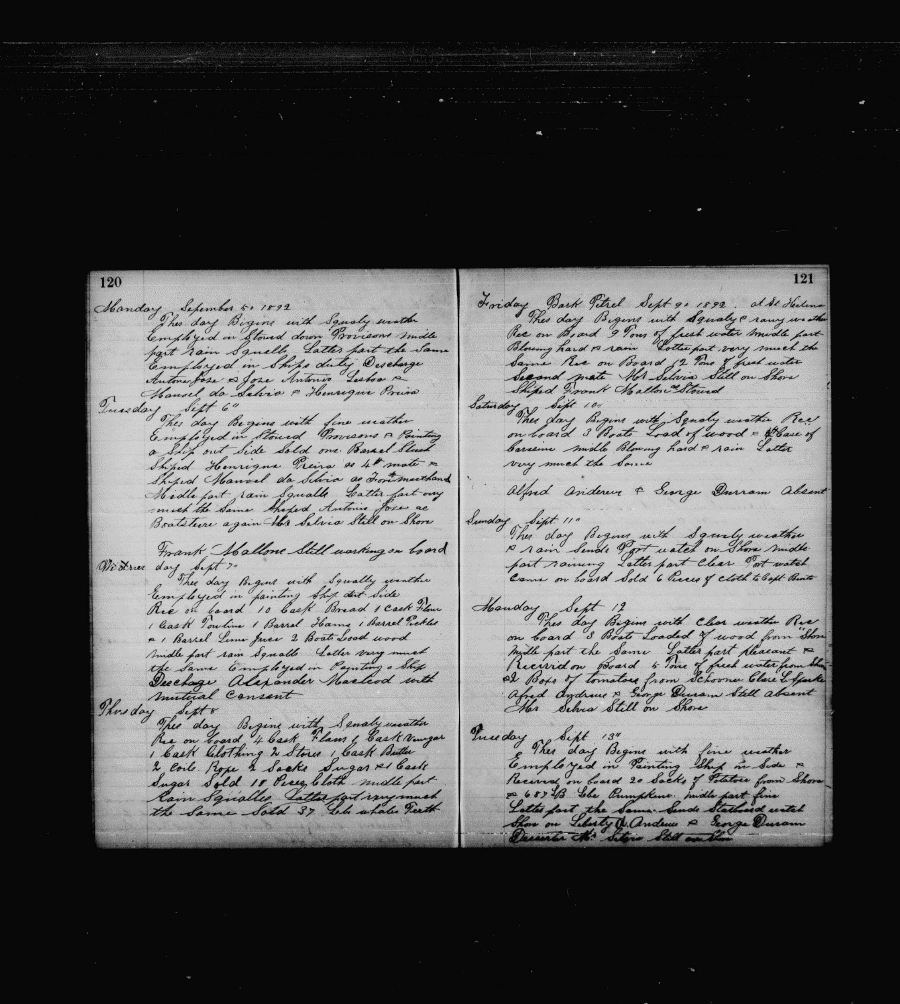 120
Monday Sepember 5" 1892
Thes day Begins with Squaly weathe
Employed in Stourd down Provisons midle
part rain Squalls Latter part the Same
Employed in Ships duty Discharge
Antone Jose & Jose Antonio Lisboa &
Manoel da Selvia & Henrique Priira
Tuesday Sept 6"
Thes day Begins with fine weather
Employed in Stourd Provisons & Painting
a Ship out Side Sold one Barrel Slush
Shiped Henrique Preira as 4th mate &
Shiped Manoel da Silvia as
Midle part rain Squalls Latter part very
much the Same Shiped Antonio Jose as
Boatsteere again Mr Selvia Still on Shore
Frank Mallone Still working on board
day Sept 7"
Thes day Begins with Squally weathe
Employed in painting Ship out Side
Rec on board 10 Cask Bread 1 Cask Flour
1 Cask Towline 1 Barrel Hams 1 Barrel Pickles
& 1 Barrel Lime Juce 2 Boats Load wood
midle part rain Squalls Latter very much
the Same Employed in Painting a Ship
Discharge Alexander Macleod with
mutual Consent
Thersday Sept 8
Thes day Begins with Squaly weather
Rec on board 4 Cask Flour 6 Cask Vinegar
1 Cask Clothing 2 Stores 1 Cask Butter
2 Coils Rope 2 Sacks Sugar & 1 Cask
Sugar Sold 10 Pices Cloth midle part
Rain Squalls Latter part very much
the Same Sold 37 Lbs whales Teeth
121
Friday Bark Petrel Sept 9" 1892. at St Helena
Thes day Begins with Squaly & rainy weathe
Rec on Board 9 Tons of fresh water middle part
Blowing hard & rain Latter part very much the
Same Rec on Board 12 Tons of fresh water
Second mate Mr Selvia Still on Shore
Shiped Frank Mallon Stourd
Saturday Sept 10"
Thes day Begins with Squaly weather Rec
on board 3 Boats Load of wood & Case of
Carsene midle Blowing hard & rain Latter
very much the Same
Alfred Andrews & George Durram Absent
Sunday Sept 11"
Thes day Begins with Squaly weather
& rain Sends Port watch on Shore midle
part raining Latter part Clear Port watch
Came on board Sold 6 Pieces of Cloth to Capt
Manday Sept 12
Thes day Begins with Clear weather Rec
on board 3 Boats Loaded of wood from Shore
midle part the Same Latter part pleasant &
Recivid on Board 5 Tons of fresh water from Shore
& 2 Boxs of tomatoes from Schoone
Afred Andrews & George Duram Still absent
Mr Selvia Still on Shore
Tuesday Sept 13"
Thes day Begins with fine weather
Employed in Painting Ship in Side &
Recived on board 20 Sacks of Potatoes from Shore
& Lbs Pumpkins midle part fine
Latter part the Same Sends Starbord watch
Shore on Liberty A. Andrews & George Duram
Deserter Mr Selvia Still on Shore